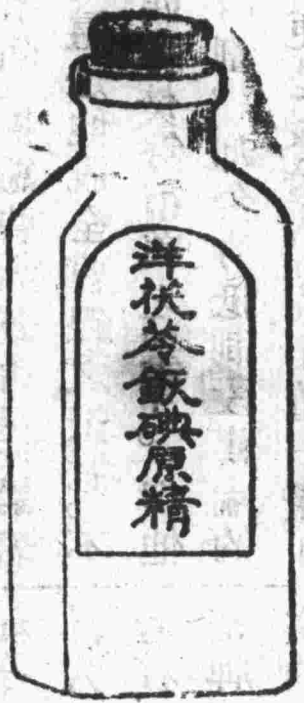 洋茯苓鉃碘原精